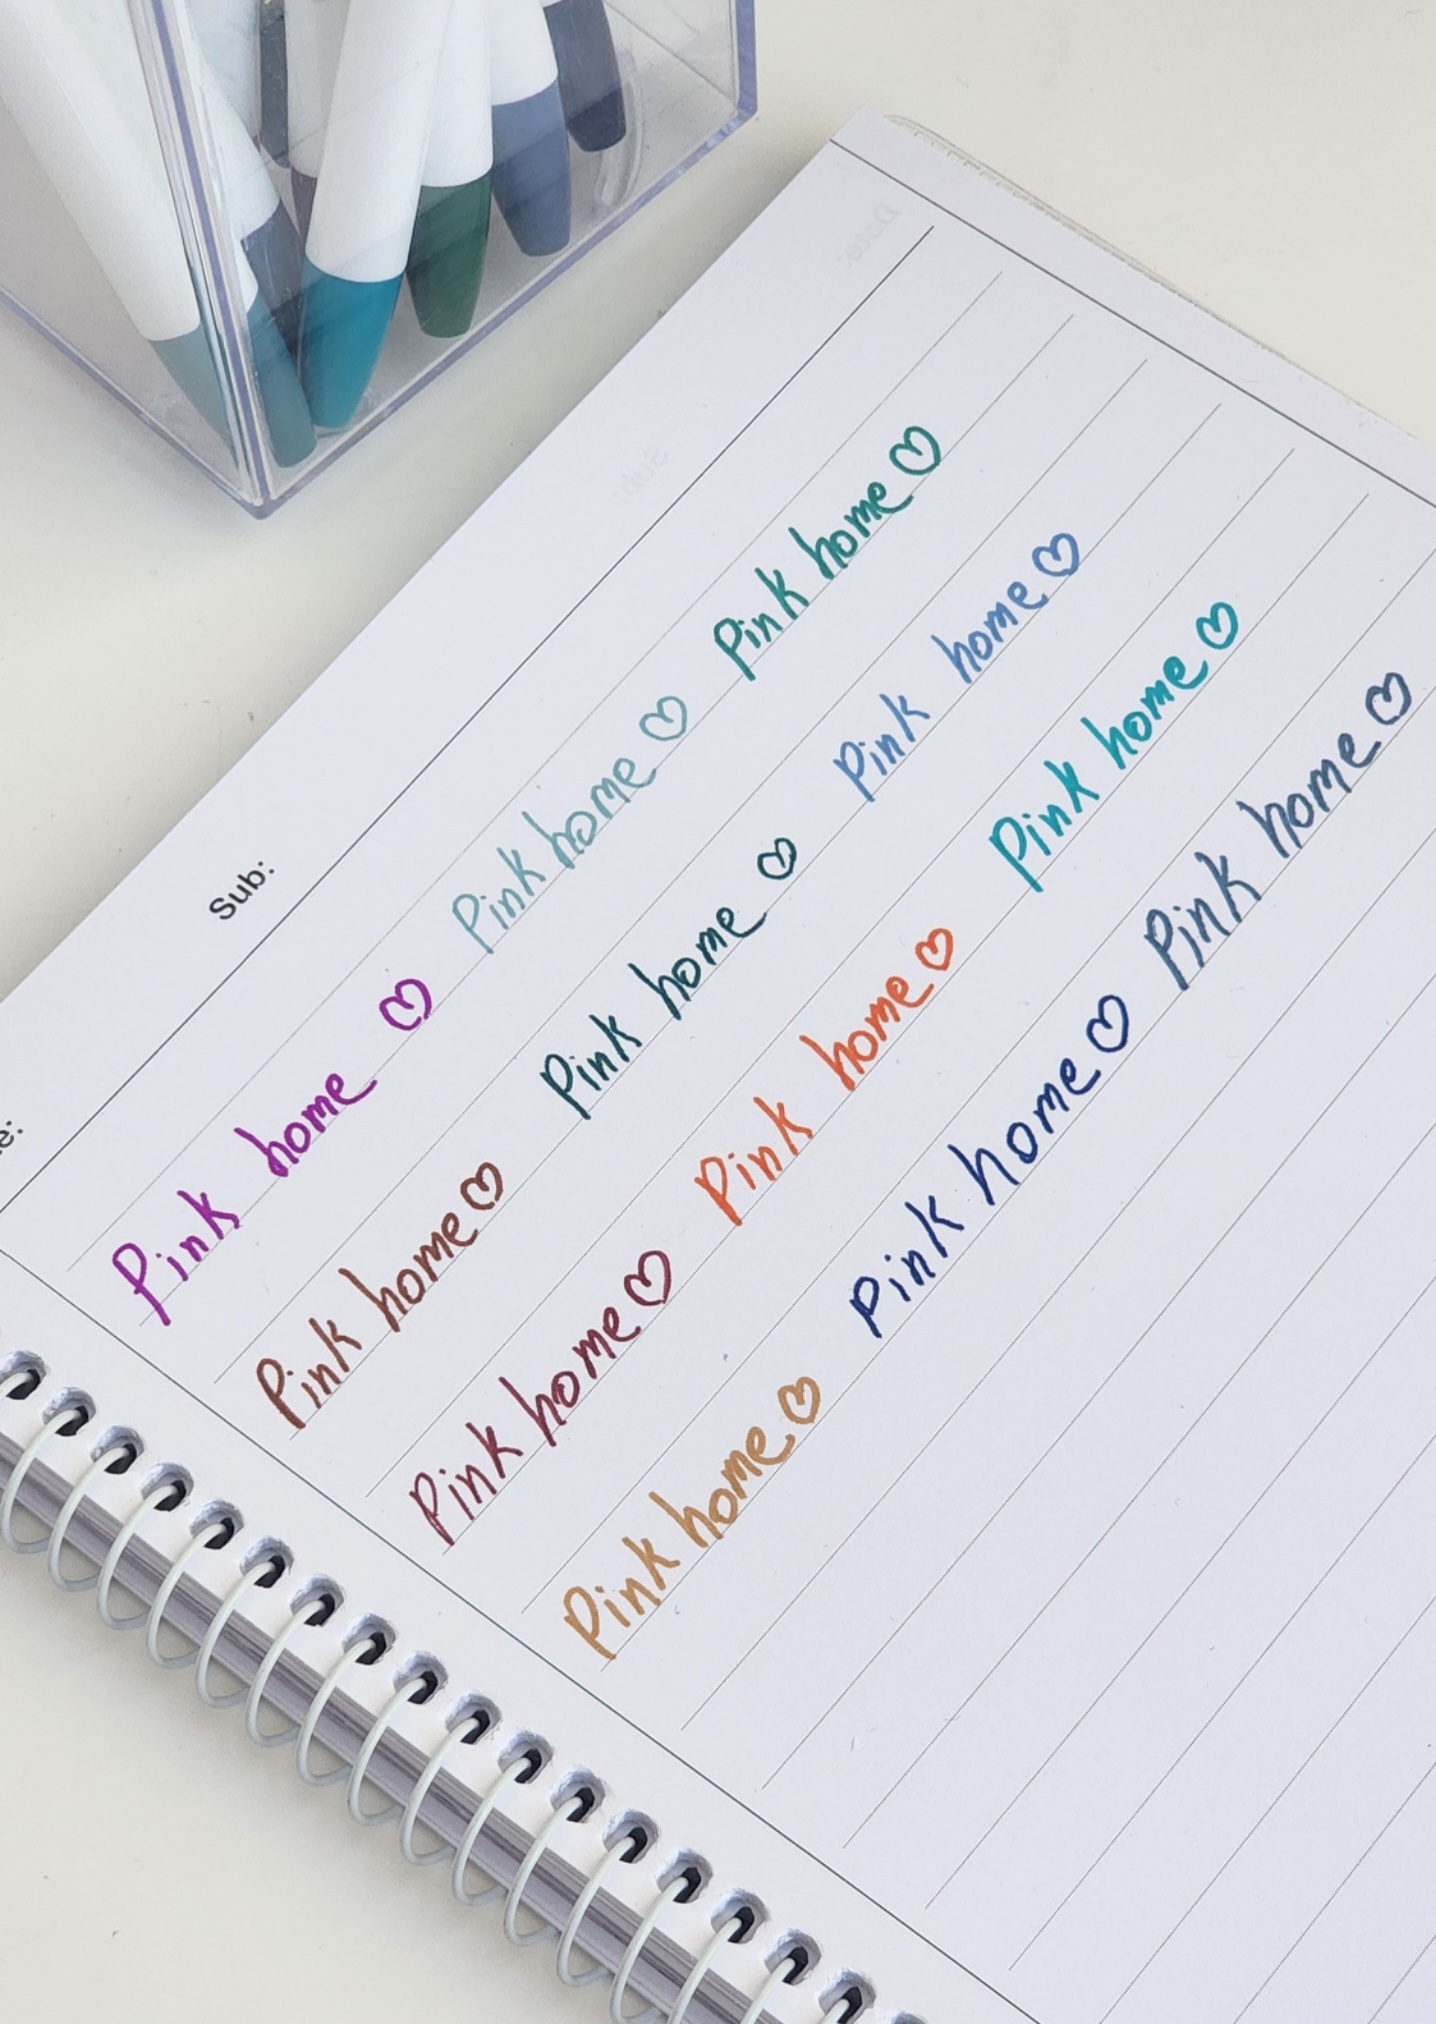 Sub:
Pink home ♡ Pink home ♡ Pink home ♡
Pink home ♡ Pink home ♡ Pink home ♡
Pink home ♡ Pink home ♡ Pink home ♡
Pink home ♡ Pink home ♡ Pink home ♡